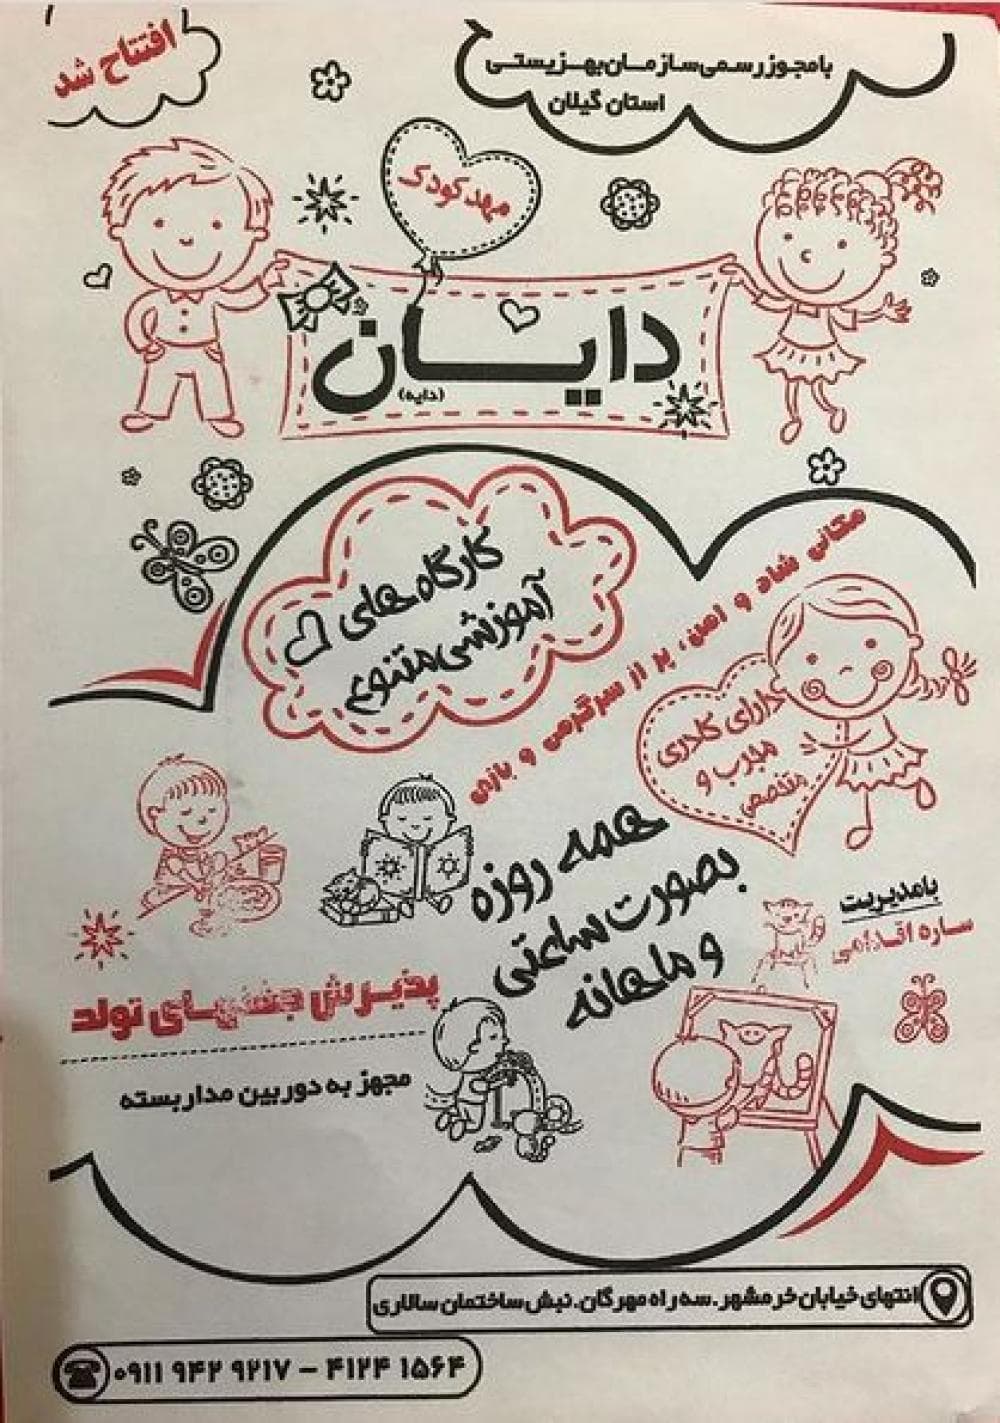 افتتاح شد
با مجوز رسمی سازمان بهزیستی
استان گیلان
مهد کودک
دایان
(دایه)
کارگاه های
آموزشی متنوع
مکانی شاد و امن، پر از سرگرمی و بازی
دارای کادری
مجرب و
متخصص
همه روزه
بصورت ساعتی
و ماهانه
با مدیریت
ساره اقدامی
پذیرش جشنهای تولد
مجهز به دوربین مداربسته
انتهای خیابان خرمشهر. سه راه مهرگان. نبش ساختمان سالاری
۰۹۱۱ ۹۴۲ ۹۲۱۷ – ۴۱۲۴ ۱۵۶۴